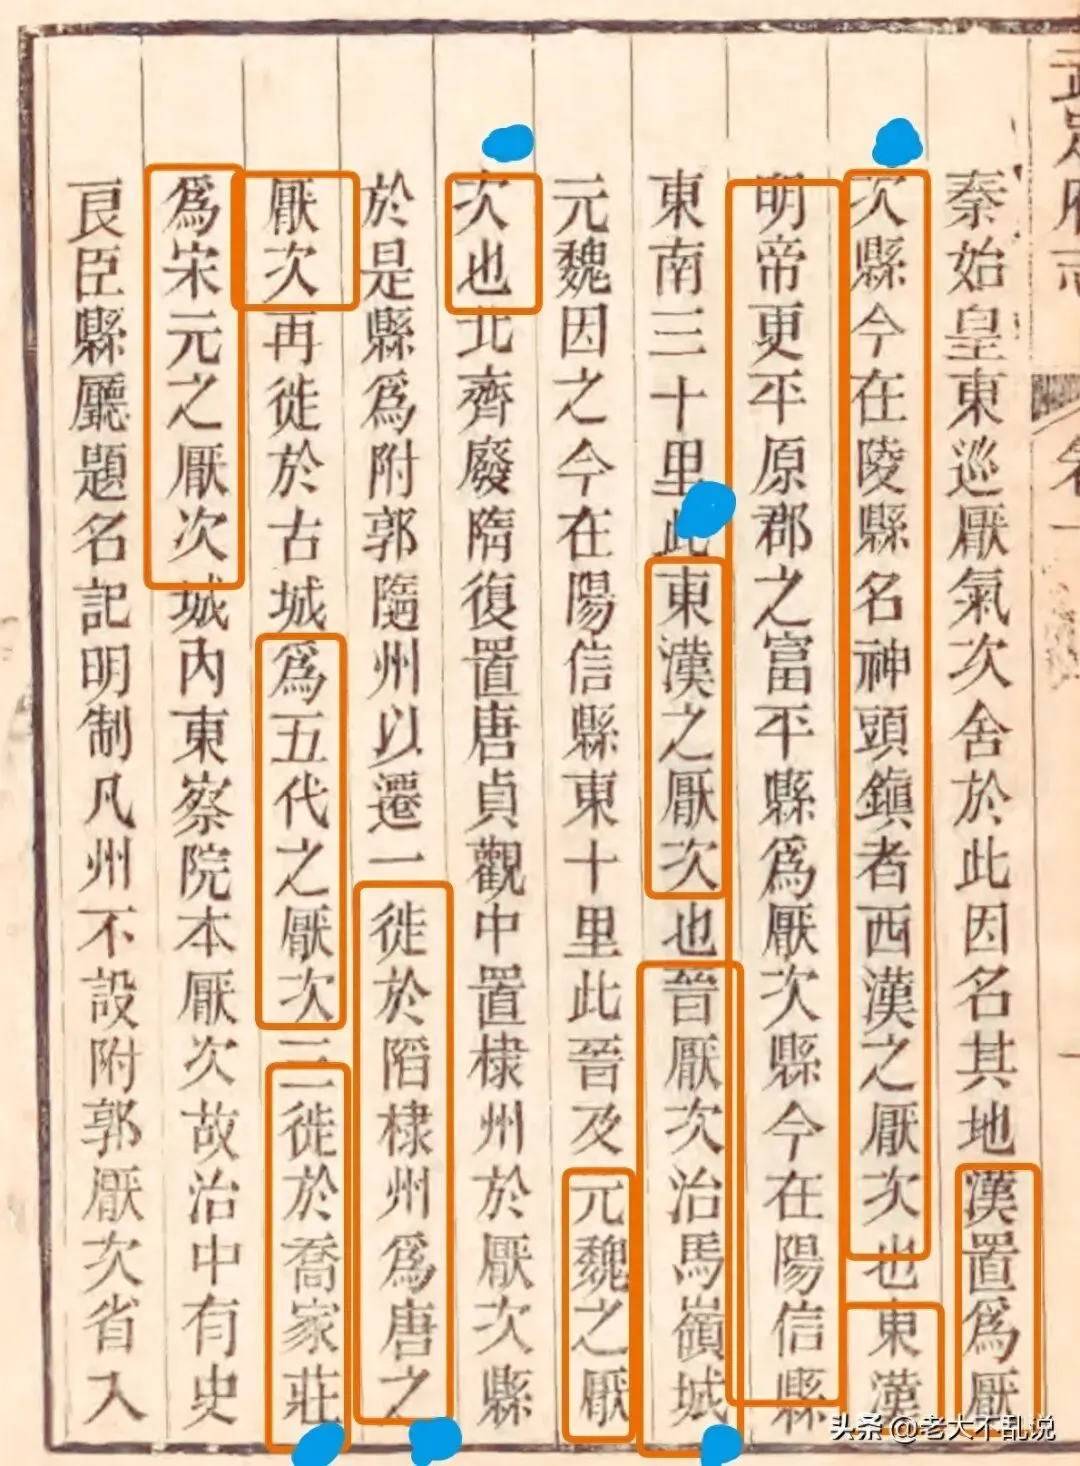 武定府志
秦始皇東巡厭氣次舍於此因名其地漢置爲厭
次縣今在陵縣名神頭鎮者西漢之厭次也東漢
明帝更平原郡之富平縣爲厭次縣今在陽信縣
東南三十里此東漢之厭次也晉厭次治馬嶺城
元魏因之今在陽信縣東十里此晉及元魏之厭
次也北齊廢隋復置唐貞觀中置棣州於厭次縣
於是縣爲附郭隨州以遷一徙於陷棣州爲唐之
厭次再徙於古城爲五代之厭次三徙於喬家莊
爲宋元之厭次城內東察院本厭次故治中有史
良臣縣廳題名記明制凡州不設附郭厭次省入
头条 @老大不乱说